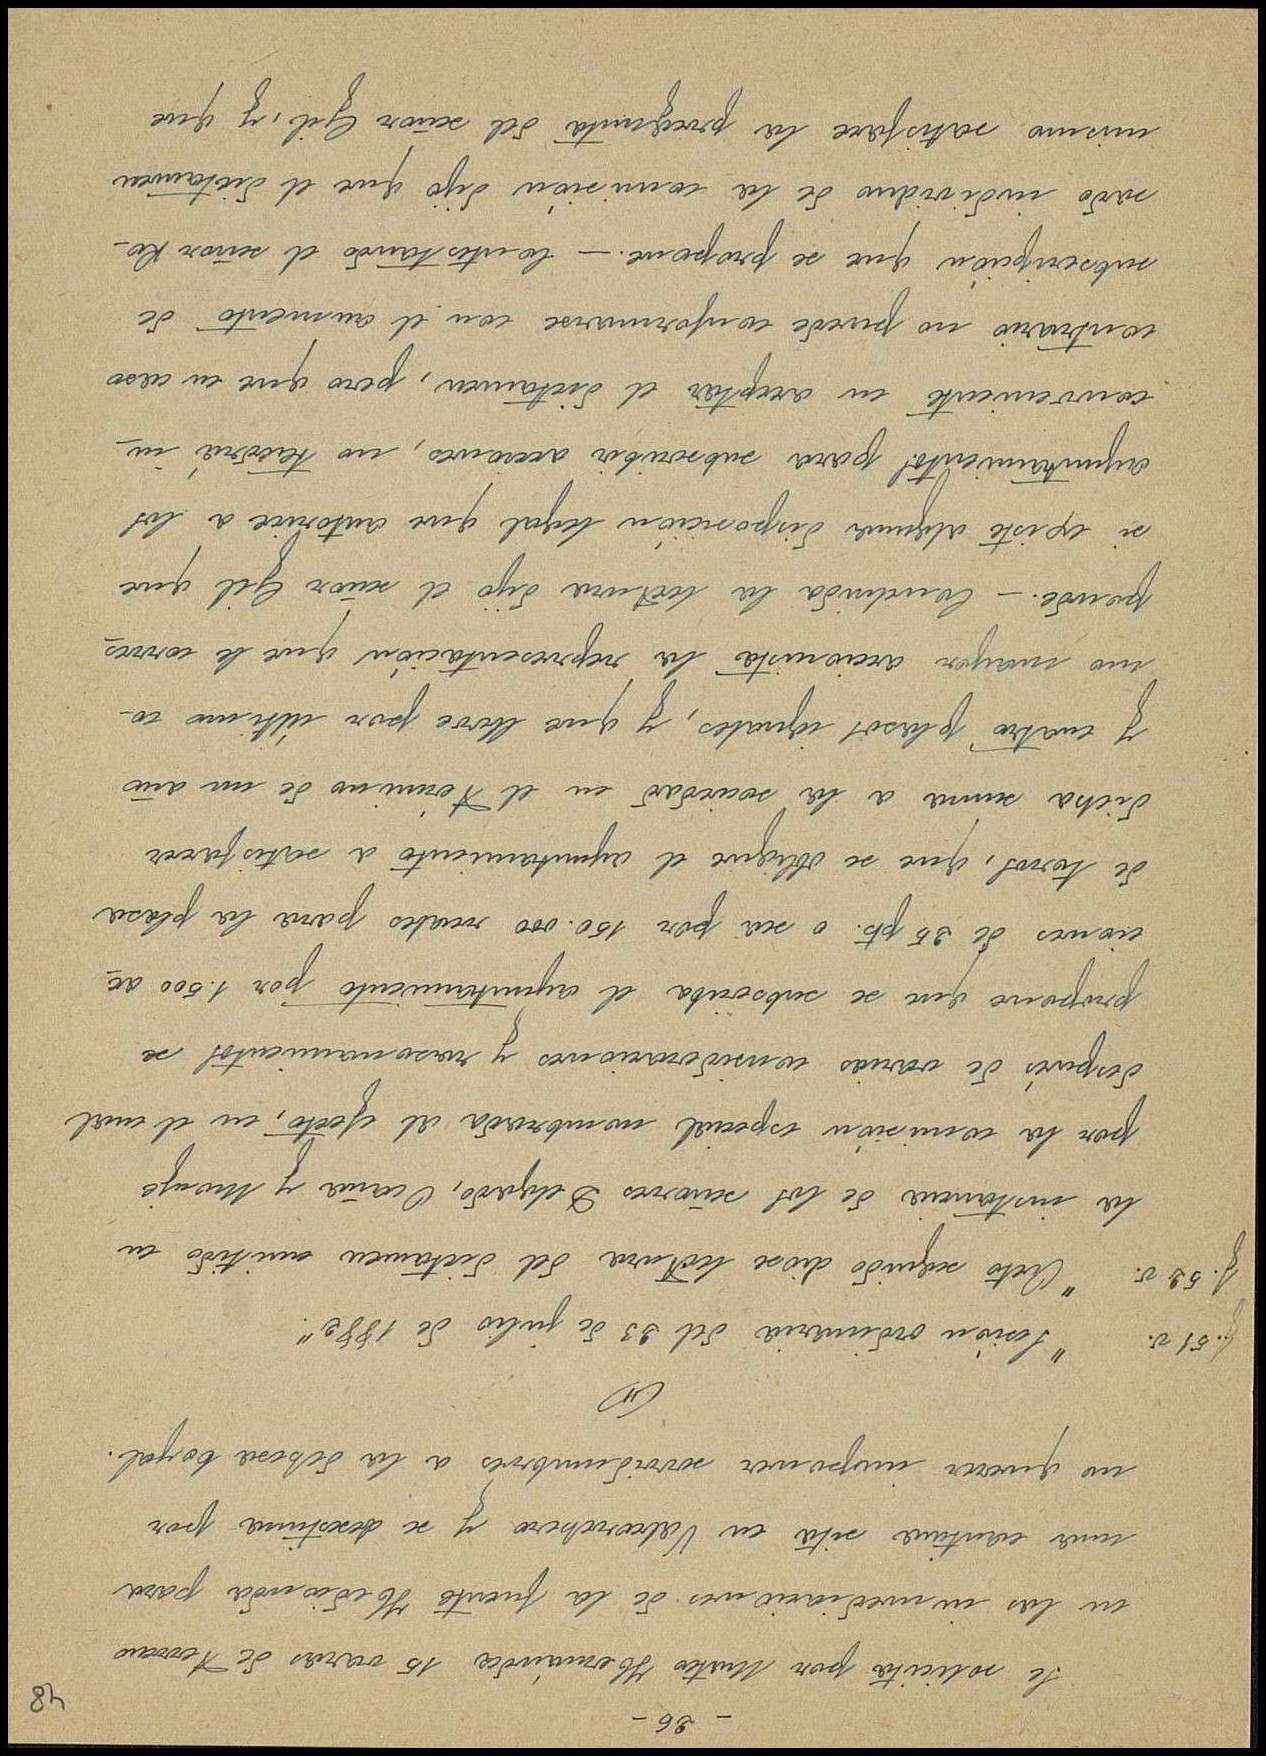 - 26 -
48
Se solicita por Mateo Hernández 15 varas de terreno
en las inmediaciones de la fuente Hedionda para
una cantina sita en Valcorchero y se desestima por
no querer imponer servidumbres a la dehesa boyal.
(11)
f. 51 v. "Sesión ordinaria del 23 de julio de 1882".
f. 52 v. "Acto seguido diose lectura del dictamen emitido en
la instancia de los señores Delgado, Ocaña y Monje
por la comisión especial nombrada al efecto, en el cual
después de varias consideraciones y razonamientos se
propone que se subscriba el ayuntamiento por 1.500 ac-
ciones de 25 pts. o sea por 150.000 reales para la plaza
de toros, que se obligue el ayuntamiento a satisfacer
dicha suma a la sociedad en el término de un año
y cuatro plazos iguales, y que lleve por último co-
mo mayor accionista la representación que le corres-
ponde. - Concluida la lectura dijo el señor Gil que
si existe alguna disposición legal que autorice a los
ayuntamientos para subscribir acciones, no tendrá in-
conveniente en aceptar el dictamen, pero que en caso
contrario no puede conformarse con el aumento de
subscripción que se propone. - Contestando el señor Ro-
sado individuo de la comisión dijo que el dictamen
mismo satisface la pregunta del señor Gil, y que